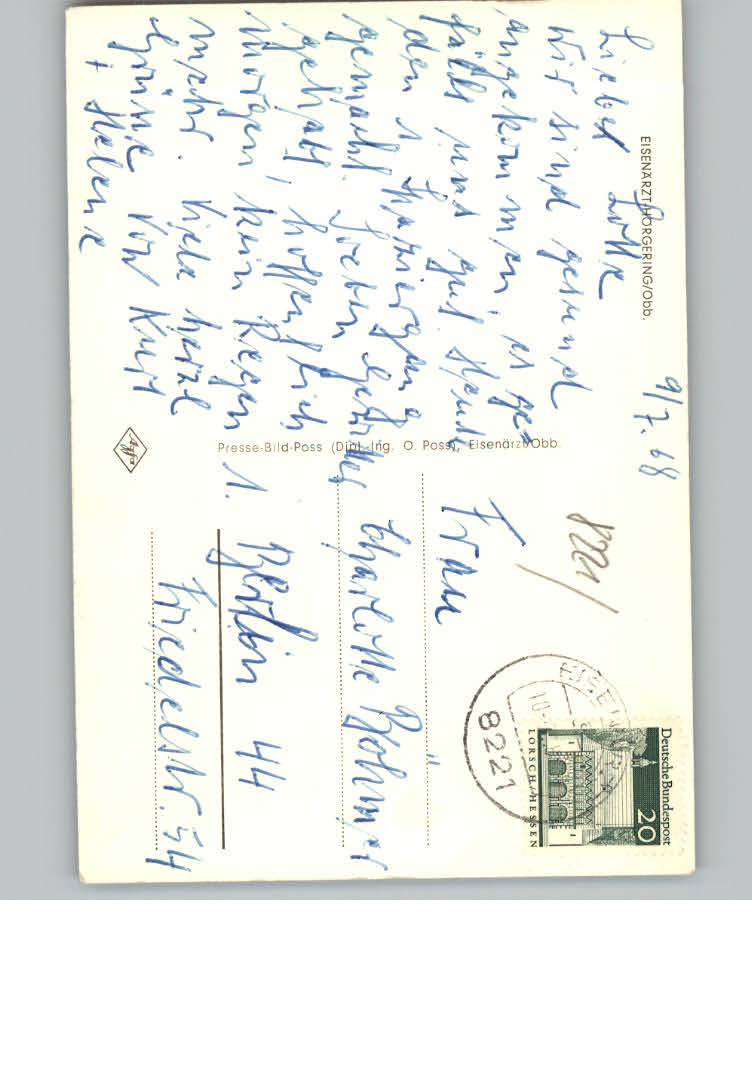 EISENÄRZT-HÖRGERING/Obb.
9/7. 68
Liebe Lotte
Wir sind gesund
angekommen, es ge=
fällt uns gut. Heute
den 1 Spaziergang
gemacht. Soeben Gewitter
gehabt, hoffentlich
morgen, kein Regen
mehr. Viele herzl
Grüsse von Kurt
+ Helene
Presse-Bild-Poss (Dipl.-Ing. O. Poss), Eisenärzt/Obb.
Agfa
8221/
Frau
Charlotte Böhmer
1. Berlin 44
Friedelstr. 54
8221
Deutsche Bundespost
20
LORSCH/HESSEN